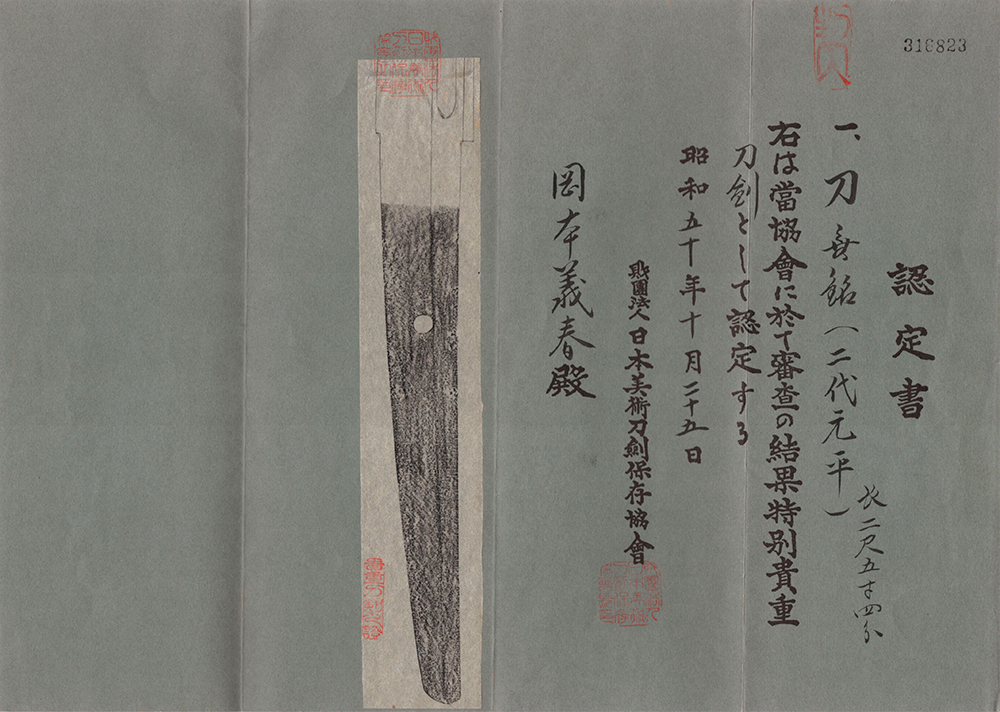 316823
認定書
一、刀 無銘（二代元平）
長二尺五寸四分
右は當協會に於て審査の結果特別貴重
刀劍として認定する
昭和五十年十月二十五日
財團法人日本美術刀劍保存協會
岡本義春殿